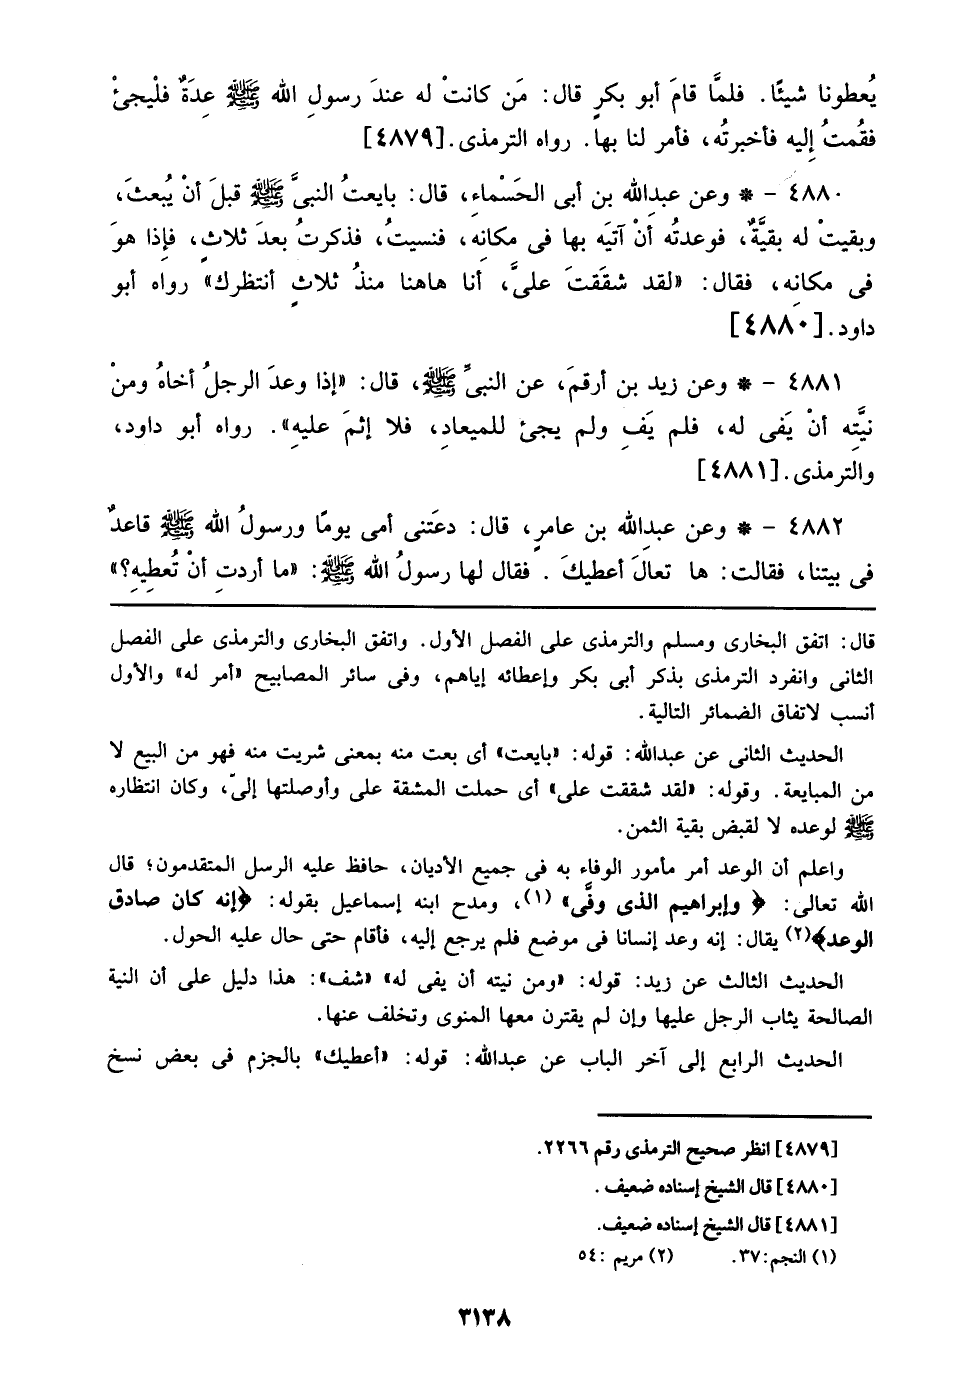 يُعطونا شيئًا. فلمَّا قامَ أبو بكرٍ قال: مَن كانتْ له عندَ رسولِ الله ﷺ عِدَةٌ فلْيجئْ
فقُمتُ إليه فأخبرتُه، فأمر لنا بها. رواه الترمذى.[٤٨٧٩]
٤٨٨٠ - * وعن عبدِالله بن أبى الحَسْماءِ، قال: بايعتُ النبىَّ ﷺ قبلَ أنْ يُبعثَ،
وبقيتْ له بقيَّةٌ، فوعدتُه أنْ آتيَه بها فى مكانِه، فنسيتُ، فذكرتُ بعدَ ثلاثٍ، فإِذا هوَ
فى مكانِه، فقال: «لقد شقَقتَ علىَّ، أنا هاهنا منذُ ثلاثٍ أنتظرك» رواه أبو
داود.[٤٨٨٠]
٤٨٨١ - * وعن زيد بن أرقمَ، عن النبىِّ ﷺ، قال: «إذا وعدَ الرجلُ أخاهُ ومنْ
نيَّتِه أنْ يَفى له، فلم يَفِ ولم يجئْ للميعادِ، فلا إثمَ عليهِ». رواه أبو داود،
والترمذى.[٤٨٨١]
٤٨٨٢ - * وعن عبدِالله بن عامرٍ، قال: دعَتنى أمى يومًا ورسولُ الله ﷺ قاعدٌ
فى بيتنا، فقالت: ها تعالَ أعطيكَ . فقال لها رسولُ الله ﷺ: «ما أردتِ أنْ تُعطِيهِ؟»
قال: اتفق البخارى ومسلم والترمذى على الفصل الأول. واتفق البخارى والترمذى على الفصل
الثانى وانفرد الترمذى بذكر أبى بكر وإعطائه إياهم، وفى سائر المصابيح «أمر له» والأول
أنسب لاتفاق الضمائر التالية.
الحديث الثانى عن عبدالله: قوله: «بايعت» أى بعت منه بمعنى شريت منه فهو من البيع لا
من المبايعة. وقوله: «لقد شققت على» أى حملت المشقة على وأوصلتها إلىّ، وكان انتظاره
ﷺ لوعده لا لقبض بقية الثمن.
واعلم أن الوعد أمر مأمور الوفاء به فى جميع الأديان، حافظ عليه الرسل المتقدمون؛ قال
الله تعالى: ﴿ وإبراهيم الذى وفَّى» (١)، ومدح ابنه إسماعيل بقوله: ﴿إنه كان صادق
الوعد﴾(٢) يقال: إنه وعد إنسانا فى موضع فلم يرجع إليه، فأقام حتى حال عليه الحول.
الحديث الثالث عن زيد: قوله: «ومن نيته أن يفى له» «شف»: هذا دليل على أن النية
الصالحة يثاب الرجل عليها وإن لم يقترن معها المنوى وتخلف عنها.
الحديث الرابع إلى آخر الباب عن عبدالله: قوله: «أعطيك» بالجزم فى بعض نسخ
[٤٨٧٩] انظر صحيح الترمذى رقم ٢٢٦٦.
[٤٨٨٠] قال الشيخ إسناده ضعيف .
[٤٨٨١] قال الشيخ إسناده ضعيف.
(١) النجم:٣٧. (٢) مريم :٥٤
٣١٣٨